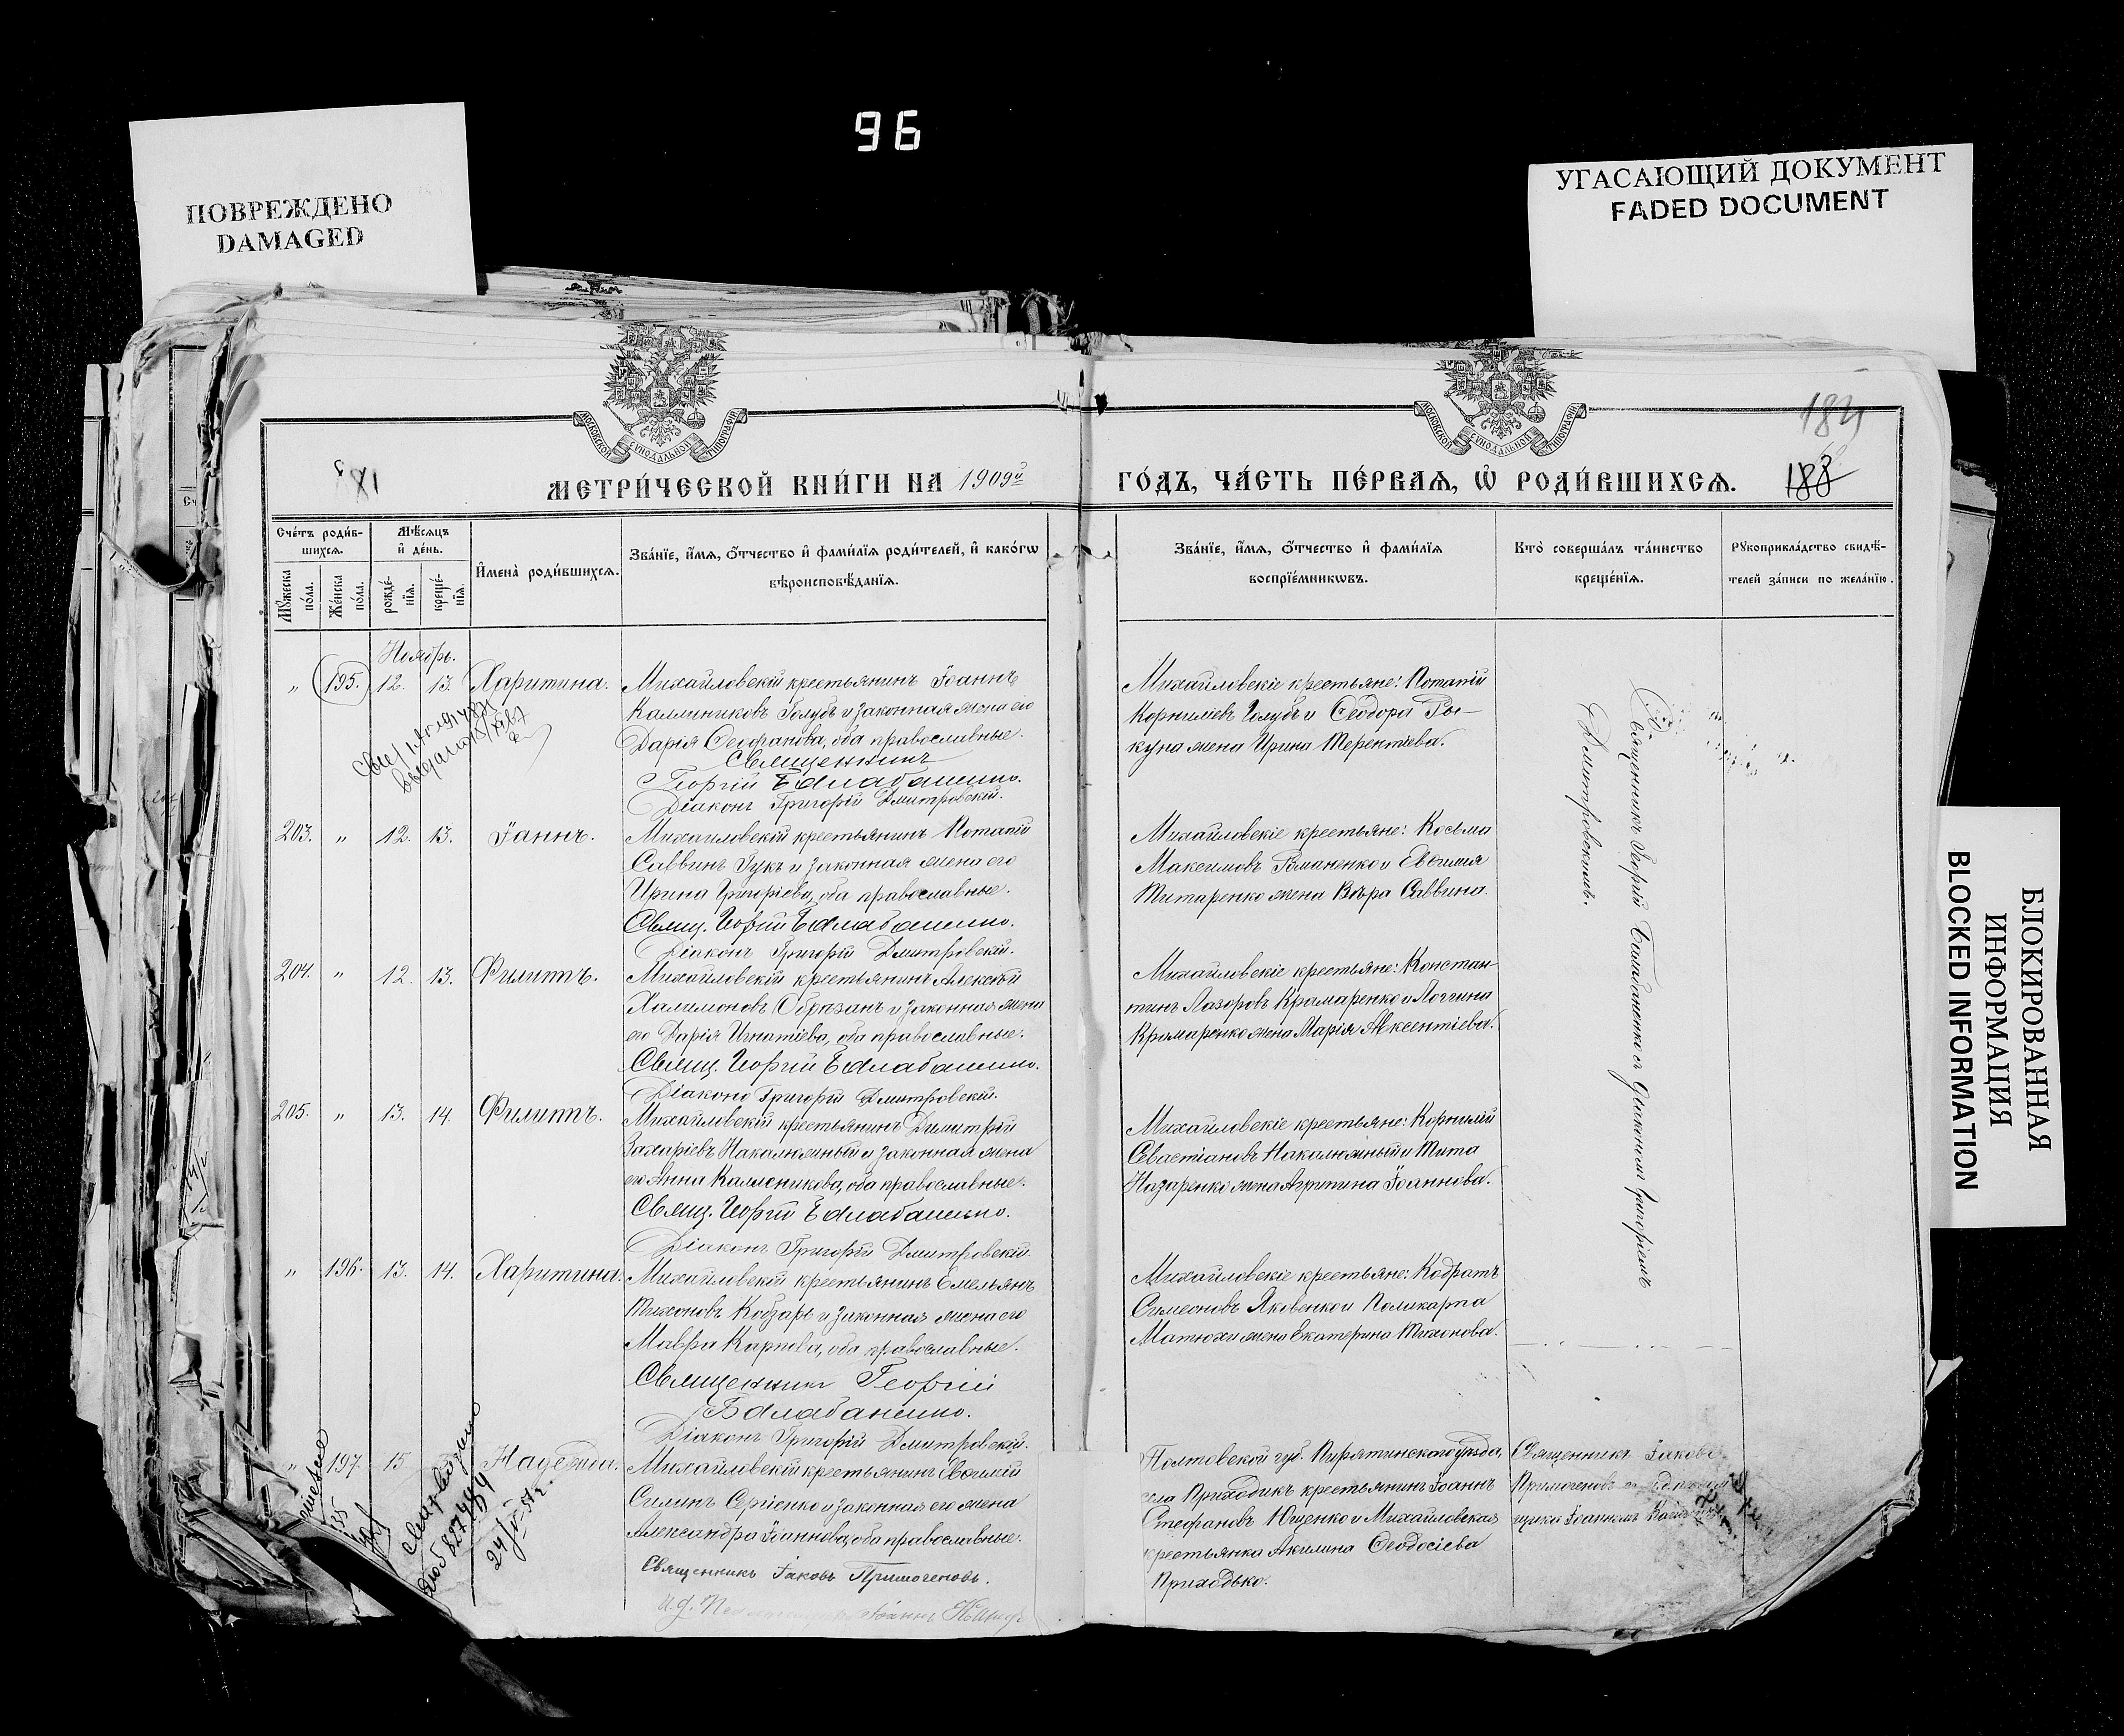 96
ПОВРЕЖДЕНО
DAMAGED
УГАСАЮЩИЙ ДОКУМЕНТ
FADED DOCUMENT
БЛОКИРОВАННАЯ
ИНФОРМАЦИЯ
BLOCKED INFORMATION
МОСКОВСКОЙ СѴНОДАЛЬНОЙ ТИПОГРАФІИ
МОСКОВСКОЙ СѴНОДАЛЬНОЙ ТИПОГРАФІИ
МЕТРИ́ЧЕСКОЙ КНИ́ГИ НА 1909й
ГО́ДЪ, ЧА́СТЬ ПЕ́РВАѦ, Ѡ҆ РОДИ́ВШИХСѦ.
188
Сче́тъ роди́в-
шихсѧ.
Мꙋ́жеска
по́ла.
Же́нска
по́ла.
Мѣ́сѧцъ
и҆ де́нь.
рожде́-
нїѧ.
креще́-
нїѧ.
И҆мена̀ роди́вшихсѧ.
Зва́нїе, и҆́мѧ, ѻ҆́тчество и҆ фами́лїѧ роди́телей, и҆ како́гѡ
вѣроисповѣ́данїѧ.
Зва́нїе, и҆́мѧ, ѻ҆́тчество и҆ фами́лїѧ
воспрїе́мниковъ.
Кто̀ соверша́лъ та́инство
креще́нїѧ.
Рꙋкоприкла́дство свидѣ́-
телей за́писи по жела́нїю.
Ноябрь.
" 195. 12. 13. Харитина.
Михайловскій крестьянинъ Іоаннъ
Каллиниковъ Голубъ и законная жена его
Дарія Ѳеофанова, оба православные.
Священникъ
Георгій Балабаненко.
Діаконъ Григорій Дмитровскій.
Михайловскіе крестьяне: Потапій
Корниліевъ Голубъ и Ѳеодора Гы-
куна жена Ирина Терентіева.
Священникъ Георгій Балабаненко съ діакономъ Григоріемъ
Дмитровскимъ.
203. " 12. 13. Іаннъ.
Михайловскій крестьянинъ Потапій
Саввинъ Гукъ и законная жена его
Ирина Григоріева, оба православные.
Свящ. Георгій Балабаненко.
Діаконъ Григорій Дмитровскій.
Михайловскіе крестьяне: Косьма
Максимовъ Романенко и Евѳимія
Титаренко жена Вѣра Саввина.
204. " 12. 13. Филиппъ.
Михайловскій крестьянинъ Алексѣй
Халимоновъ Образанъ и законная жена
его Дарія Игнатіева, оба православные.
Свящ. Георгій Балабаненко.
Діаконъ Григорій Дмитровскій.
Михайловскіе крестьяне: Констан-
тинъ Лазоровъ Крамаренко и Логгина
Крамаренко жена Марія Авксентіева.
205. " 13. 14. Филиппъ.
Михайловскій крестьянинъ Димитрій
Захаріевъ Накалюжный и законная жена
его Анна Каллиникова, оба православные.
Свящ. Георгій Балабаненко.
Діаконъ Григорій Дмитровскій
Михайловскіе крестьяне: Корнилій
Севастіановъ Накалюжный и Тита
Назаренко жена Агрипина Іоаннова.
" 196. 13. 14. Харитина.
Михайловскій крестьянинъ Емельянъ
Тихоновъ Кобзарь и законная жена его
Мавра Карпова, оба православные.
Священникъ Георгій
Балабаненко.
Діаконъ Григорій Дмитровскій.
Михайловскіе крестьяне: Кодратъ
Симеоновъ Яковенко и Поликарпа
Матюхи жена Екатерина Тихонова.
" 197. 15 Надежда.
Михайловскій крестьянинъ Евѳимій
Силинъ Сергіенко и законная его жена
Александра Іоаннова, оба православные.
Священникъ Іаковъ Примоченовъ.
Полтавской губ. Пирятинского уѣзда,
села Приходикъ крестьянинъ Іоаннъ
Стефановъ Ющенко и Михайловская
крестьянка Акилина Ѳеодосіева
Приходько.
Священникъ Іаковъ